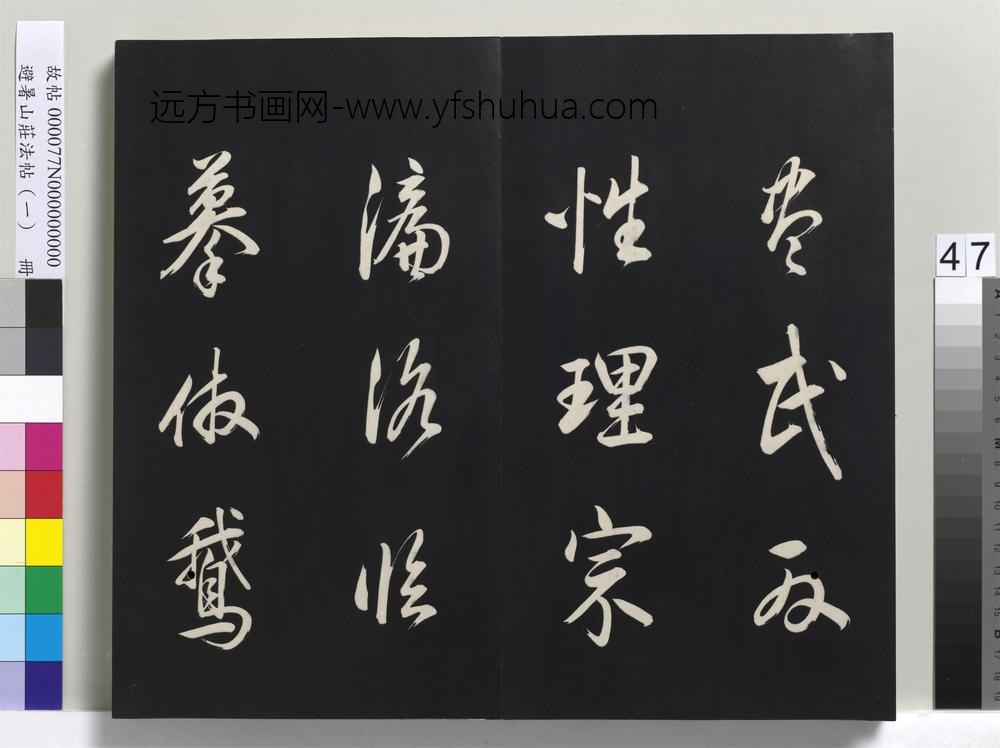 故帖 000077N000000000
避暑山莊法帖（一） 冊
远方书画网-www.yfshuhua.com
47
性理宗
濂洛臨
摹倣鵝